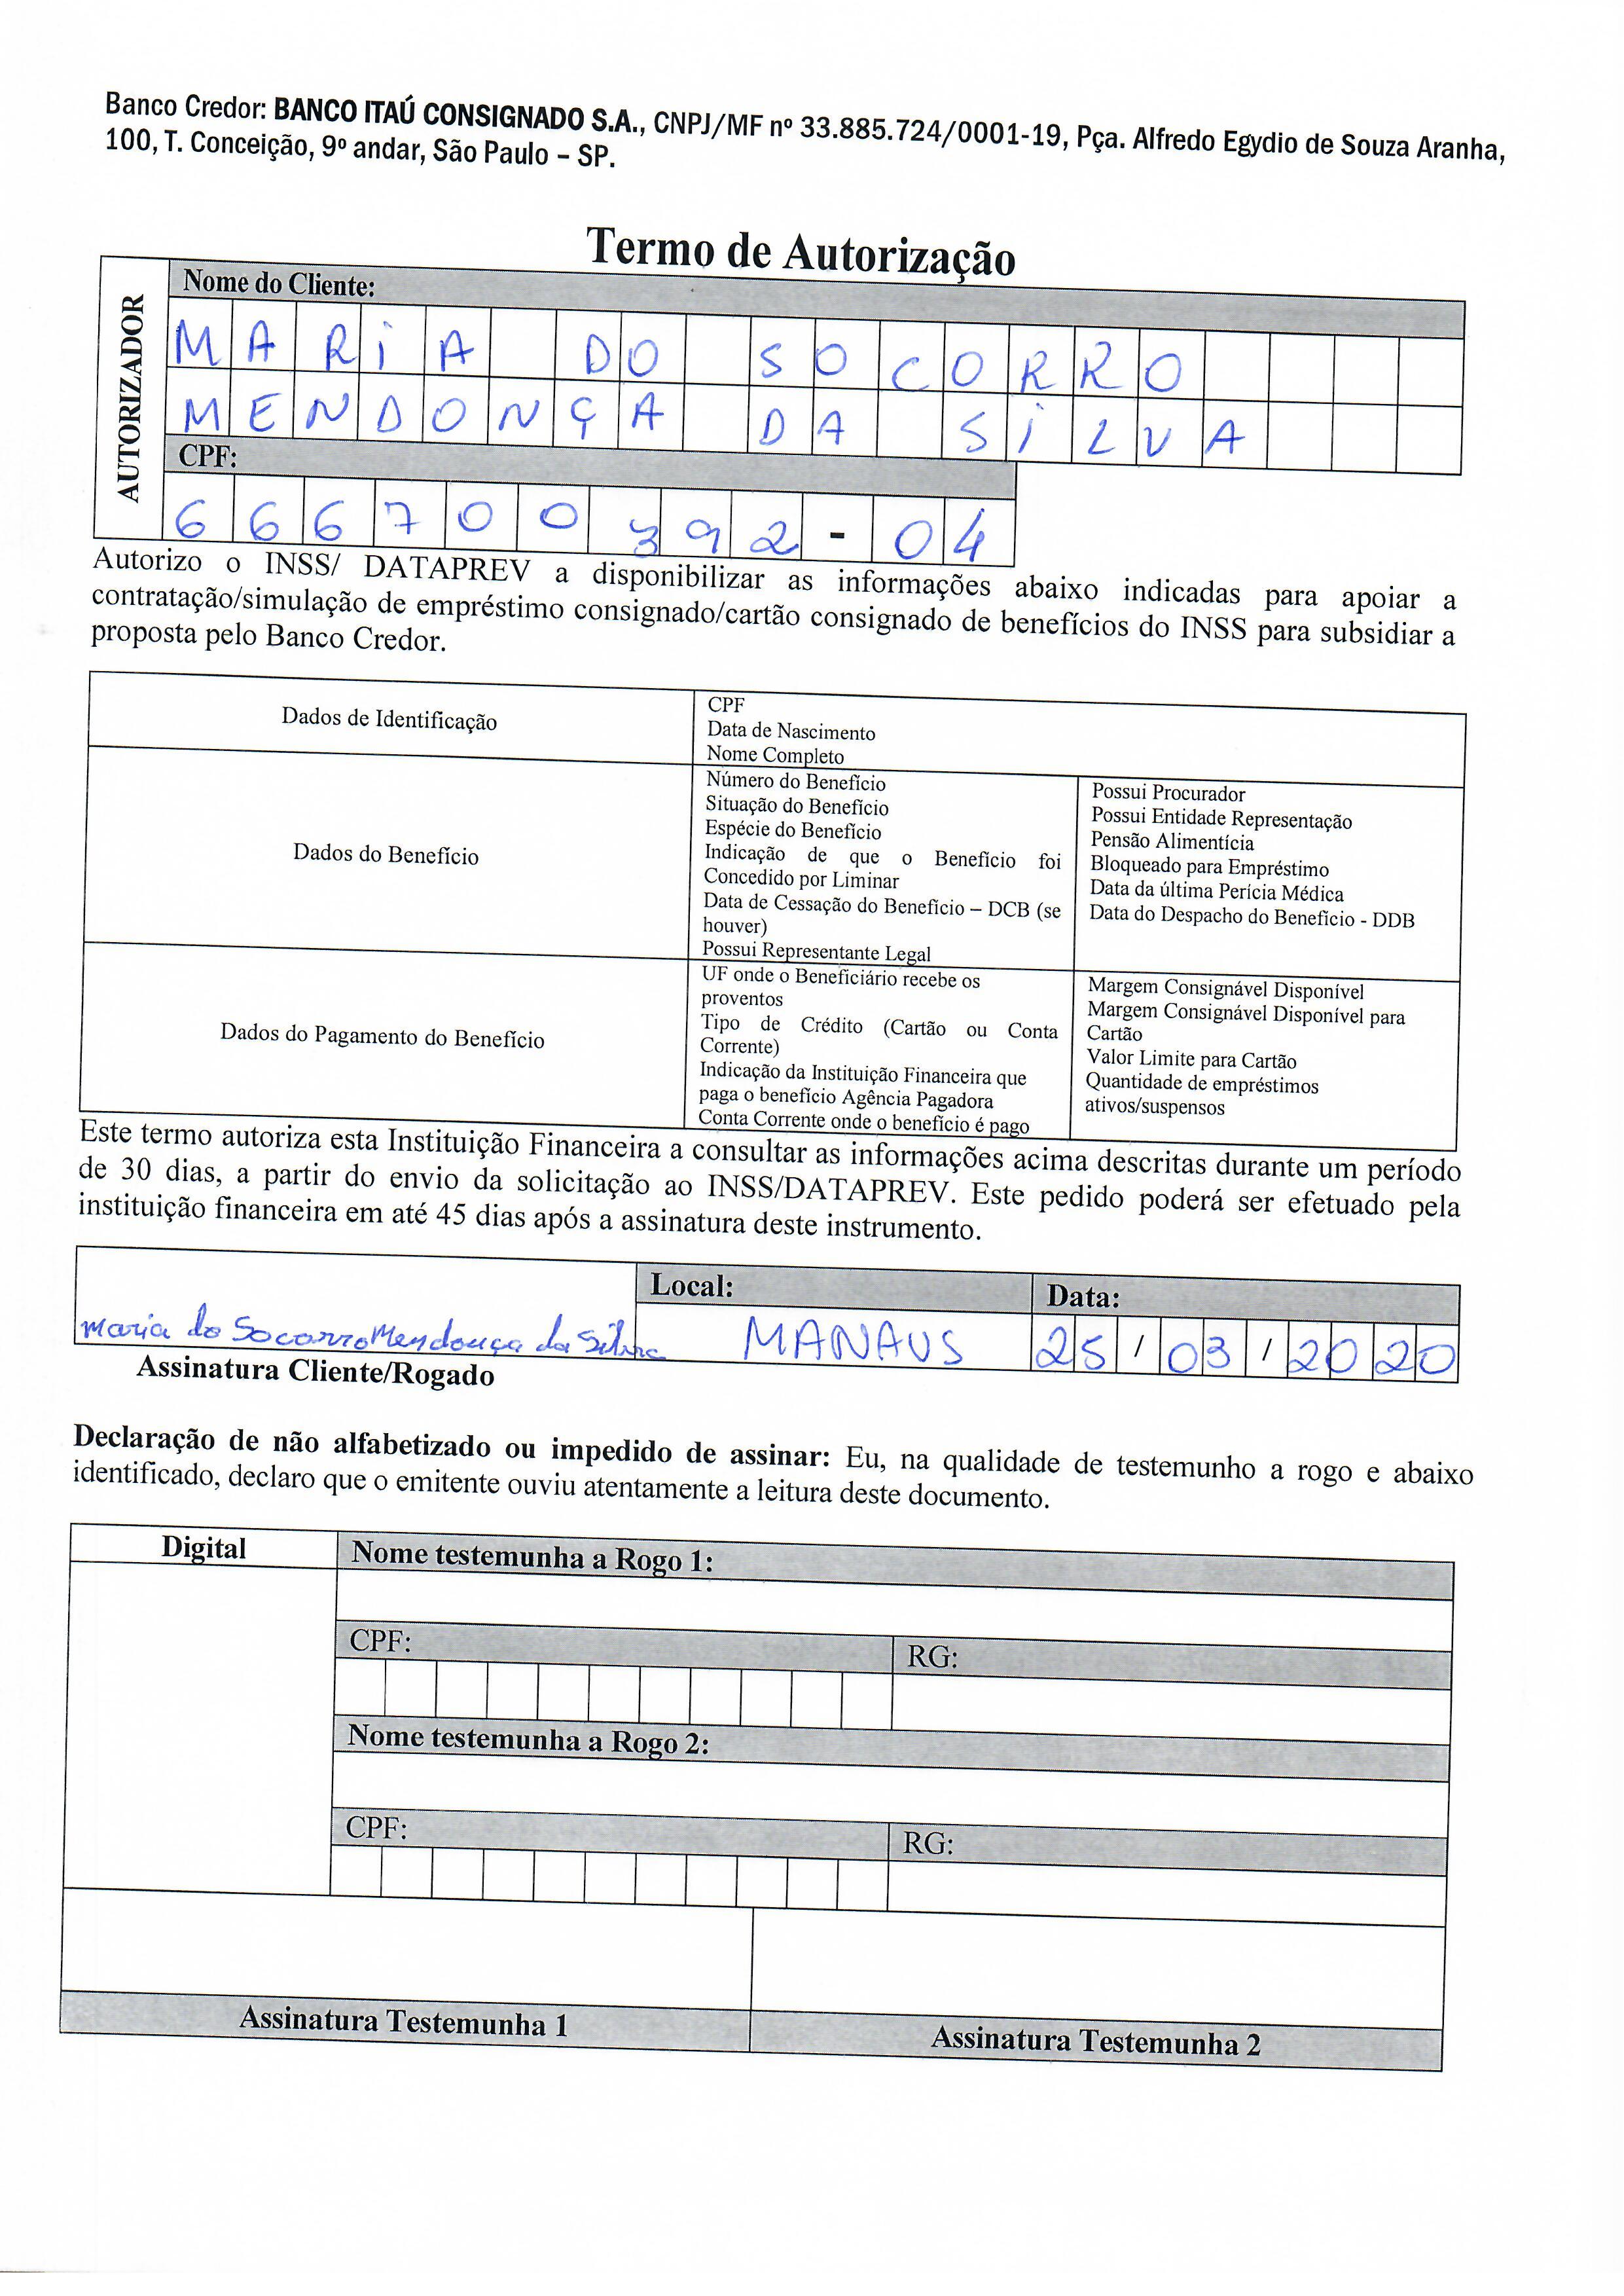 Banco Credor: BANCO ITAÚ CONSIGNADO S.A., CNPJ/MF nº 33.885.724/0001-19, Pça. Alfredo Egydio de Souza Aranha,
100, T. Conceição, 9º andar, São Paulo – SP.
Termo de Autorização
AUTORIZADOR
Nome do Cliente:
MARIA DO SOCORRO
MENDONÇA DA SILVA
CPF:
666700392-04
Autorizo o INSS/ DATAPREV a disponibilizar as informações abaixo indicadas para apoiar a
contratação/simulação de empréstimo consignado/cartão consignado de benefícios do INSS para subsidiar a
proposta pelo Banco Credor.
Dados de Identificação
CPF
Data de Nascimento
Nome Completo
Dados do Benefício
Número do Benefício
Situação do Benefício
Espécie do Benefício
Indicação de que o Benefício foi
Concedido por Liminar
Data de Cessação do Benefício – DCB (se
houver)
Possui Representante Legal
Possui Procurador
Possui Entidade Representação
Pensão Alimentícia
Bloqueado para Empréstimo
Data da última Perícia Médica
Data do Despacho do Benefício - DDB
Dados do Pagamento do Benefício
UF onde o Beneficiário recebe os
proventos
Tipo de Crédito (Cartão ou Conta
Corrente)
Indicação da Instituição Financeira que
paga o benefício Agência Pagadora
Conta Corrente onde o benefício é pago
Margem Consignável Disponível
Margem Consignável Disponível para
Cartão
Valor Limite para Cartão
Quantidade de empréstimos
ativos/suspensos
Este termo autoriza esta Instituição Financeira a consultar as informações acima descritas durante um período
de 30 dias, a partir do envio da solicitação ao INSS/DATAPREV. Este pedido poderá ser efetuado pela
instituição financeira em até 45 dias após a assinatura deste instrumento.
Local:
Data:
Maria do Socorro Mendonça da Silva
MANAUS
25/03/2020
Assinatura Cliente/Rogado
Declaração de não alfabetizado ou impedido de assinar: Eu, na qualidade de testemunho a rogo e abaixo
identificado, declaro que o emitente ouviu atentamente a leitura deste documento.
Digital
Nome testemunha a Rogo 1:
CPF:
RG:
Nome testemunha a Rogo 2:
CPF:
RG:
Assinatura Testemunha 1
Assinatura Testemunha 2